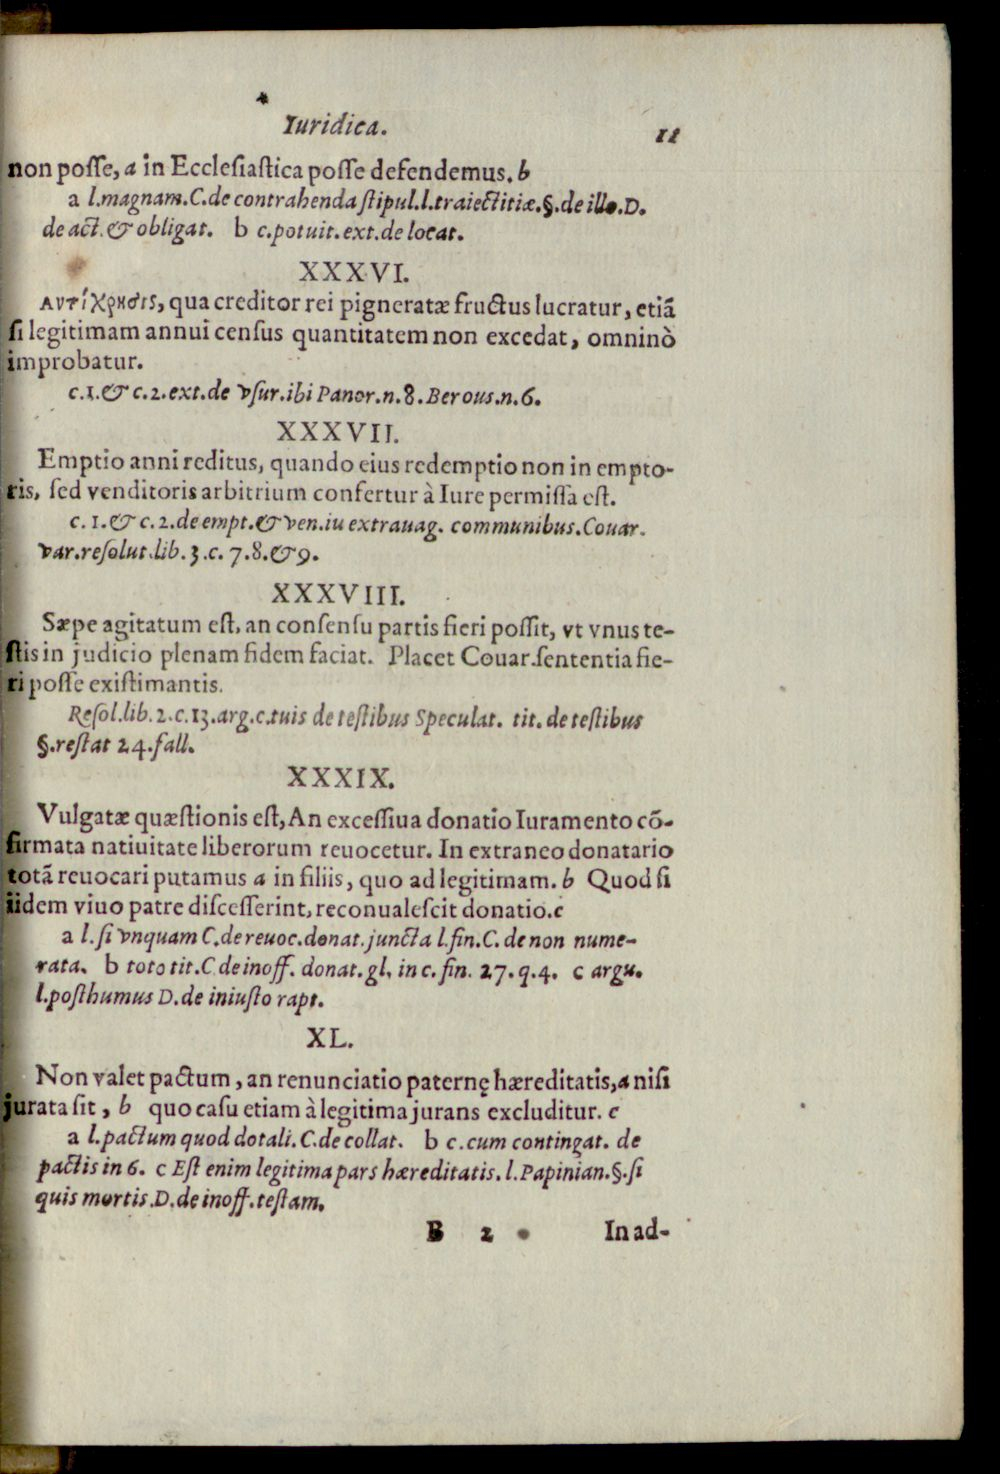 Iuridica. 11
non posse, a in Ecclesiastica posse defendemus. b
a l.magnam.C.de contrahenda stipul.l.traiectitiæ.§.de illo.D.
de act.& obligat. b c.potuit.ext.de locat.
XXXVI.
αντίχρησις, qua creditor rei pigneratæ fructus lucratur, etiã
si legitimam annui census quantitatem non excedat, omninò
improbatur.
c.1.& c.2.ext.de vsur.ibi Panor.n.8.Berous.n.6.
XXXVII.
Emptio anni reditus, quando eius redemptio non in empto-
ris, sed venditoris arbitrium confertur à Iure permissa est.
c.1.& c.2.de empt.& ven.iu extrauag. communibus.Couar.
var.resolut.lib.3.c.7.8.&9.
XXXVIII.
Sæpe agitatum est, an consensu partis fieri possit, vt vnus te-
stis in judicio plenam fidem faciat. Placet Couar.sententia fie-
ri posse existimantis.
Resol.lib.2.c.13.arg.c.tuis de testibus Speculat. tit. de testibus
§.restat 24.fall.
XXXIX.
Vulgatæ quæstionis est, An excessiua donatio Iuramento cõ-
firmata natiuitate liberorum reuocetur. In extraneo donatario
totã reuocari putamus a in filiis, quo ad legitimam. b Quod si
iidem viuo patre discesserint, reconualescit donatio.c
a l.si vnquam C.de reuoc.donat.juncta l.fin.C. de non nume-
rata. b toto tit.C de inoff. donat.gl, in c. fin. 27. q.4. c argu.
l.posthumus D.de iniusto rapt.
XL.
Non valet pactum, an renunciatio paternę hæreditatis, a nisi
jurata sit, b quo casu etiam à legitima jurans excluditur. c
a l.pactum quod dotali.C.de collat. b c.cum contingat. de
pactis in 6. c Est enim legitima pars hæreditatis. l.Papinian.§.si
quis mortis.D.de inoff.testam.
B 2 In ad-